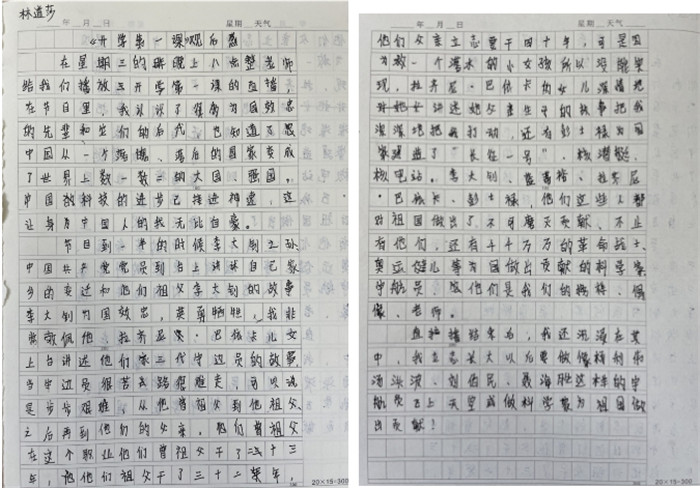 林道莎
年 月 日 星期 天气
《开学第一课》观后感
在星期三的晚上八点整老师
给我们播放三开学第一课的直播,
在节目里,我认识了很多为国效忠
的先辈和先们的后代,也知道了
中国从一个 落后的国家变成
了世界上数一数二的大国 强国。
中国 科技的进步已 神速,这
让身为中国人的我无比自豪。
节目到一半的时候李大钊之孙
中国共产党党员到台上讲述自己家
乡的变迁和他们祖父李大钊的故事
李大钊为国效忠,英勇牺牲,我非
常敬佩他。拉齐尼·巴依卡儿女
上台讲述他们家三代守边员的故事,
守边员很苦 路很难走,可以说
是步步艰难,从他曾祖父到他祖父、
之后再到他们的父亲。他们曾祖父
在这个职业他们曾祖父干了二十三
年,他他们祖父干了三十二 年,
20×15=300
年 月 日 星期 天气
他们父亲立志要干四十年,可是因
为救一个落水的小女孩所以没能实
现,拉齐尼·巴依卡的女儿
讲述她父亲生平的故事把我
深深地 打动,还有彭士禄为国
家 造了“长征一号”,核潜艇,
核电站。李大钊、 、拉齐尼
·巴依卡、彭士禄,他们这些人都
对祖国做出了不可磨灭贡献、不止
有他们,还有千千万万的革命战士、
奥运健儿等为国做出贡献的科学家
宇航员,感他们是我们的榜样、偶
像、老师。
直播 结束后,我还沉浸在其
中,我立志长大以后要做像
汤洪波、刘伯明、聂海胜这样的宇
航员飞上天空或做科学家为祖国做
出贡献!
20×15=300